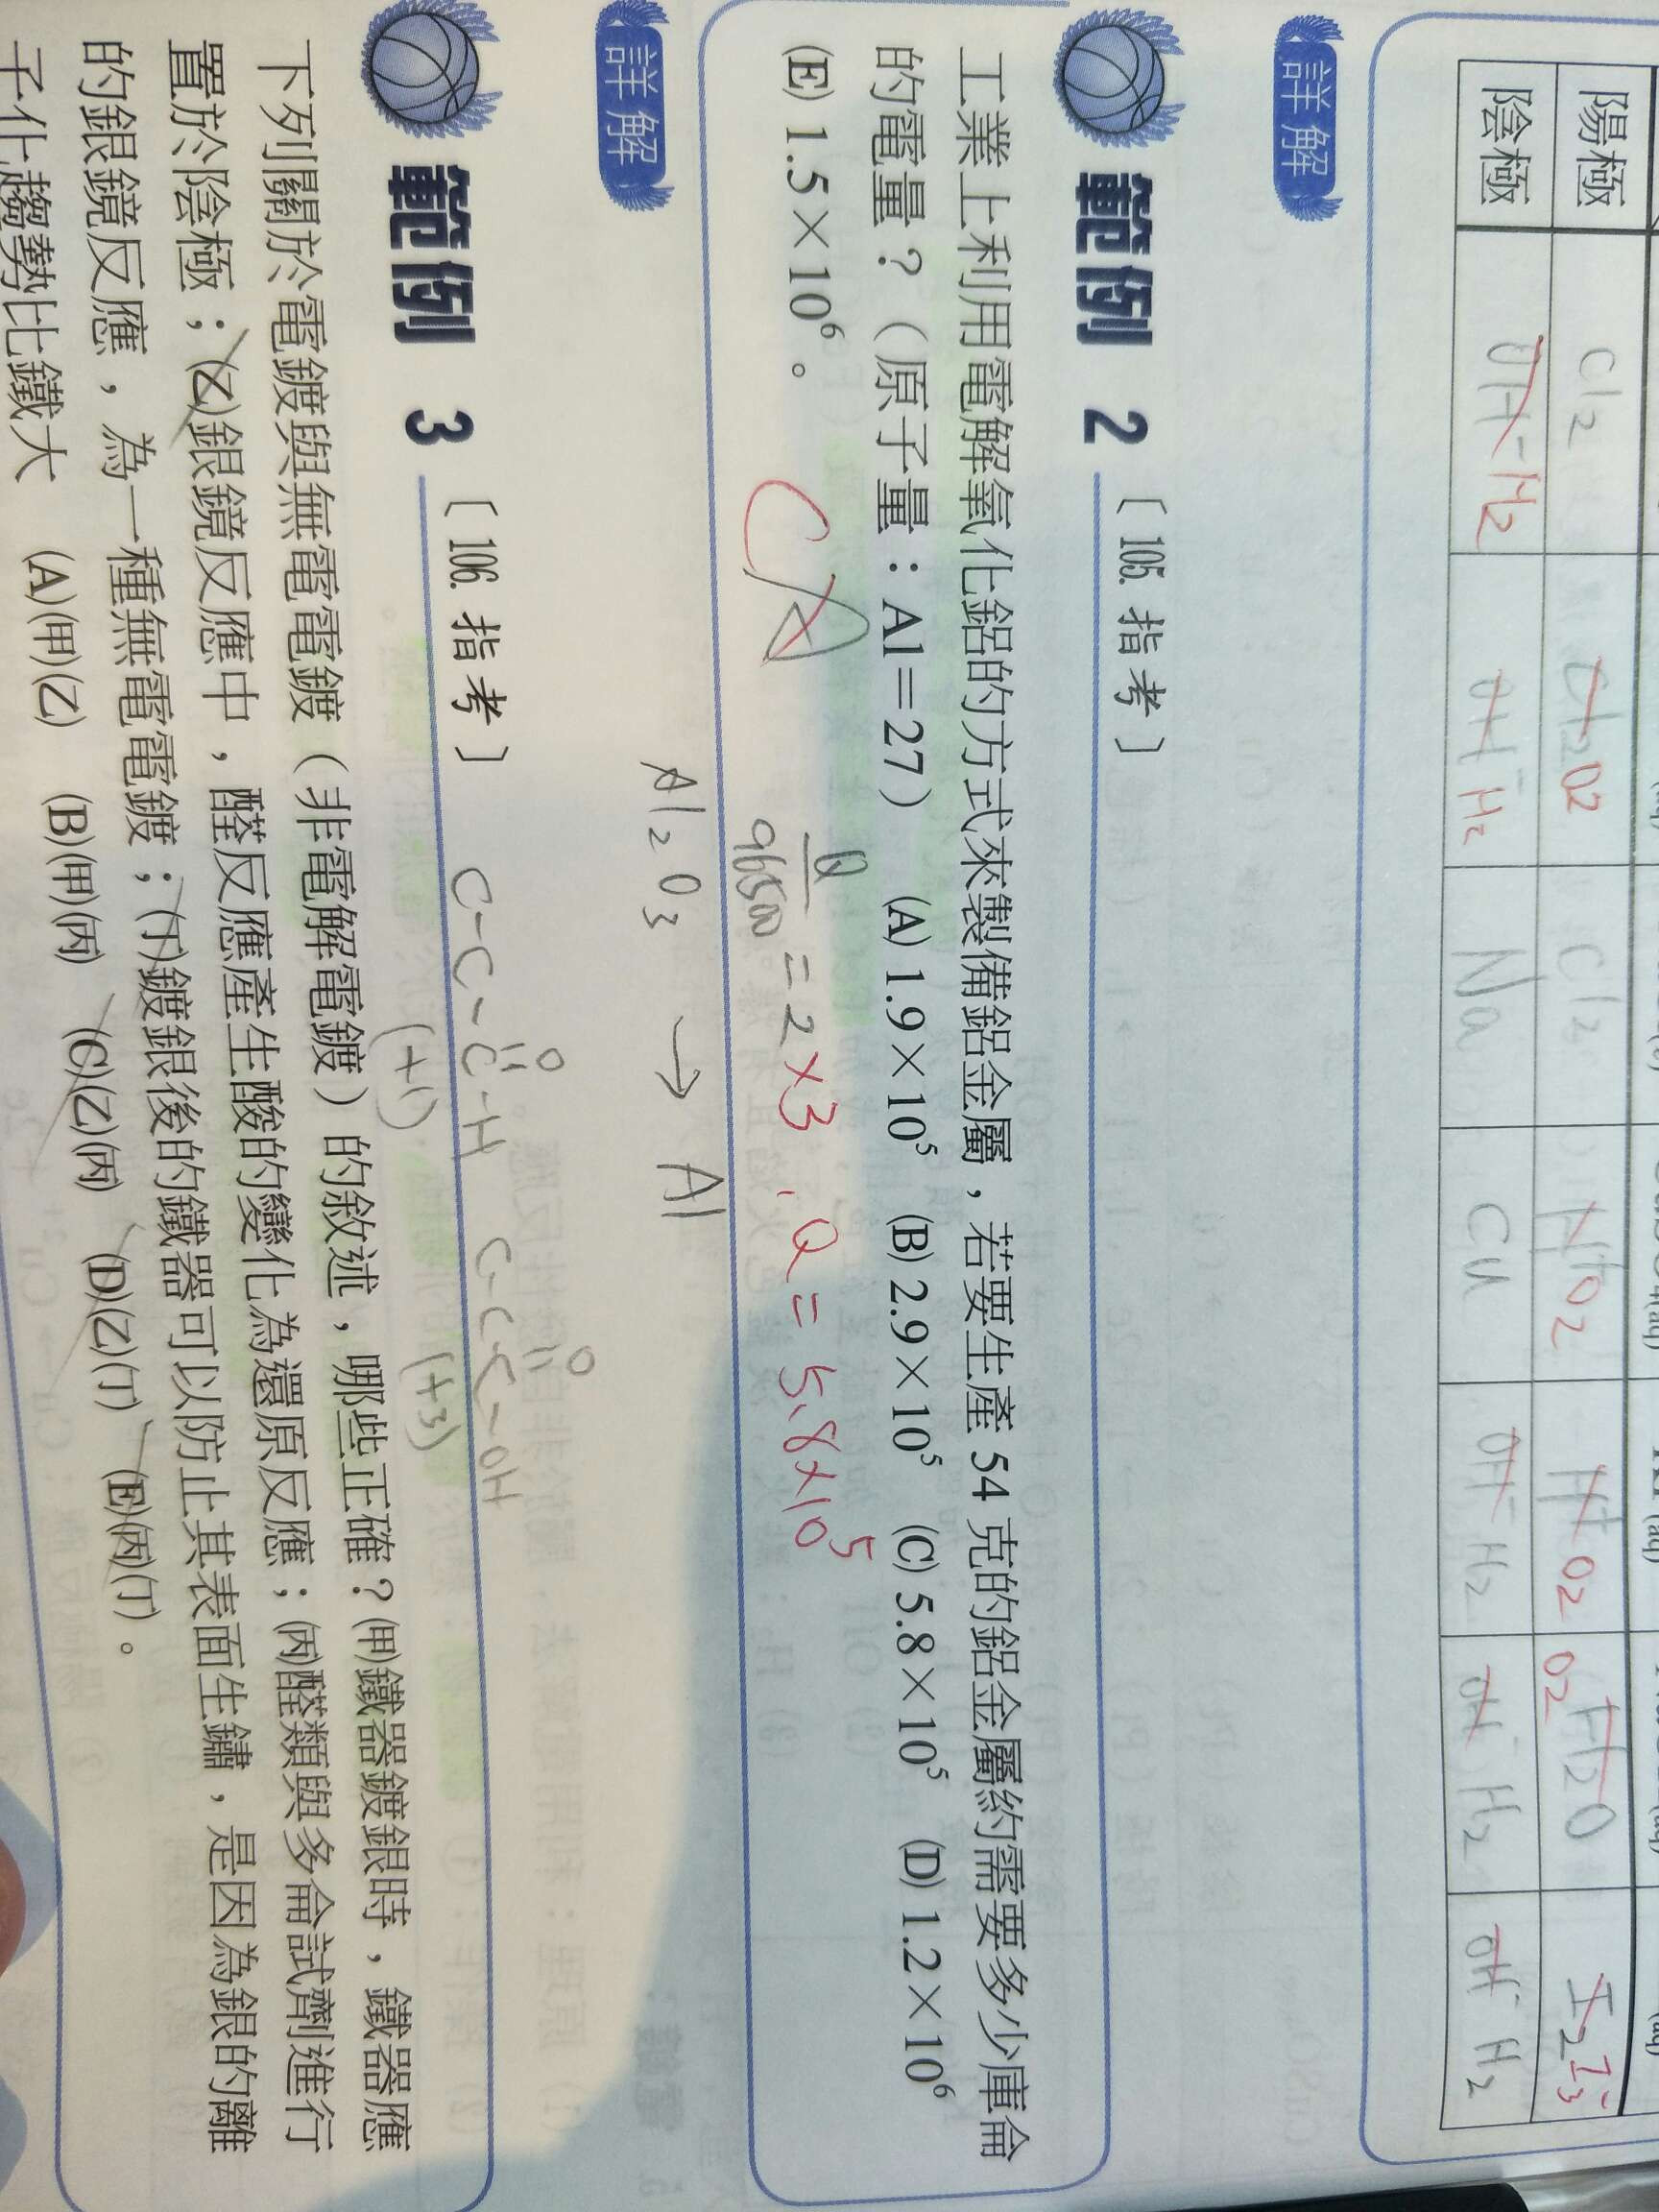 陽極 Cl₂ Cl₂ O₂ Cl₂ H⁺ O₂ H⁺ O₂ O₂ H₂O I₂ I₃⁻
陰極 OH⁻ H₂ OH⁻ H₂ Na Cu OH⁻ H₂ OH⁻ H₂ OH⁻ H₂
詳解
範例 2 〔105. 指考〕
工業上利用電解氧化鋁的方式來製備鋁金屬，若要生產 54 克的鋁金屬約需要多少庫侖
的電量？（原子量：Al＝27） (A) 1.9×10⁵ (B) 2.9×10⁵ (C) 5.8×10⁵ (D) 1.2×10⁶
(E) 1.5×10⁶。
C A
Q/96500 = 2×3、Q = 5.8×10⁵
詳解
Al₂O₃ → Al
範例 3 〔106. 指考〕
O O
C-C-C-H C-C-C-OH
(+1) (+3)
下列關於電鍍與無電電鍍（非電解電鍍）的敘述，哪些正確？(甲)鐵器鍍銀時，鐵器應
置於陰極；(乙)銀鏡反應中，醛反應產生酸的變化為還原反應；(丙)醛類與多侖試劑進行
的銀鏡反應，為一種無電電鍍；(丁)鍍銀後的鐵器可以防止其表面生鏽，是因為銀的離
子化趨勢比鐵大 (A)(甲)(乙) (B)(甲)(丙) (C)(乙)(丙) (D)(乙)(丁) (E)(丙)(丁)。